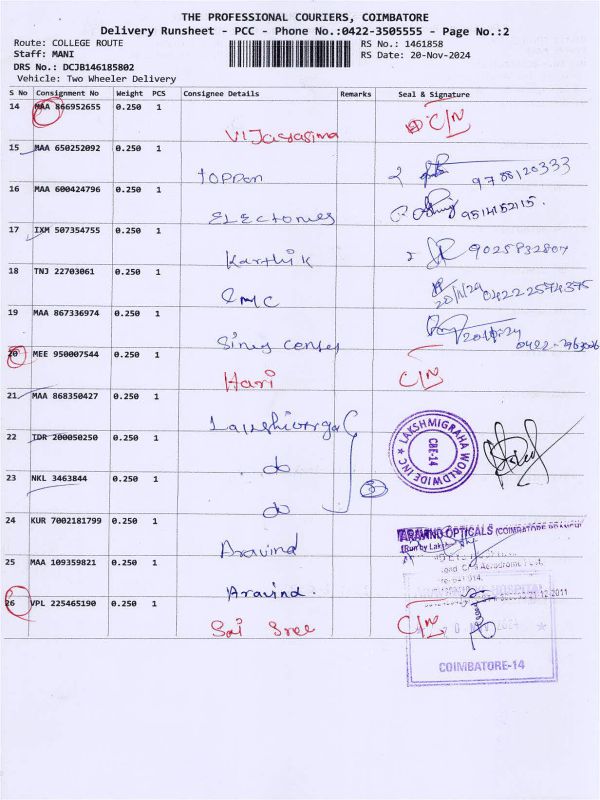 THE PROFESSIONAL COURIERS, COIMBATORE
Delivery Runsheet - PCC - Phone No.:0422-3505555 - Page No.:2
Route: COLLEGE ROUTE RS No.: 1461858
Staff: MANI RS Date: 20-Nov-2024
DRS No.: DCJB146185802
Vehicle: Two Wheeler Delivery
S No Consignment No Weight PCS Consignee Details Remarks Seal & Signature
14 MAA 866952655 0.250 1
C/N
15 MAA 650252092 0.250 1
TOPPAN 9788120333
16 MAA 600424796 0.250 1
17 IXM 507354755 0.250 1
Karthik 9025832807
18 TNJ 22703061 0.250 1
CMC 20/11/24 04222574375
19 MAA 867336974 0.250 1
20/11/24
20 MEE 950007544 0.250 1
Hari C/N
21 MAA 868350427 0.250 1
LAKSHMIGRAHA WORLDWIDE INC
CBE-14
22 IDR 200050250 0.250 1
do
23 NKL 3463844 0.250 1
do
3
24 KUR 7002181799 0.250 1
Aravind
ARAVIND OPTICALS (COIMBATORE
25 MAA 109359821 0.250 1
Aravind.
26 VPL 225465190 0.250 1
Sai Sree C/N
COIMBATORE-14